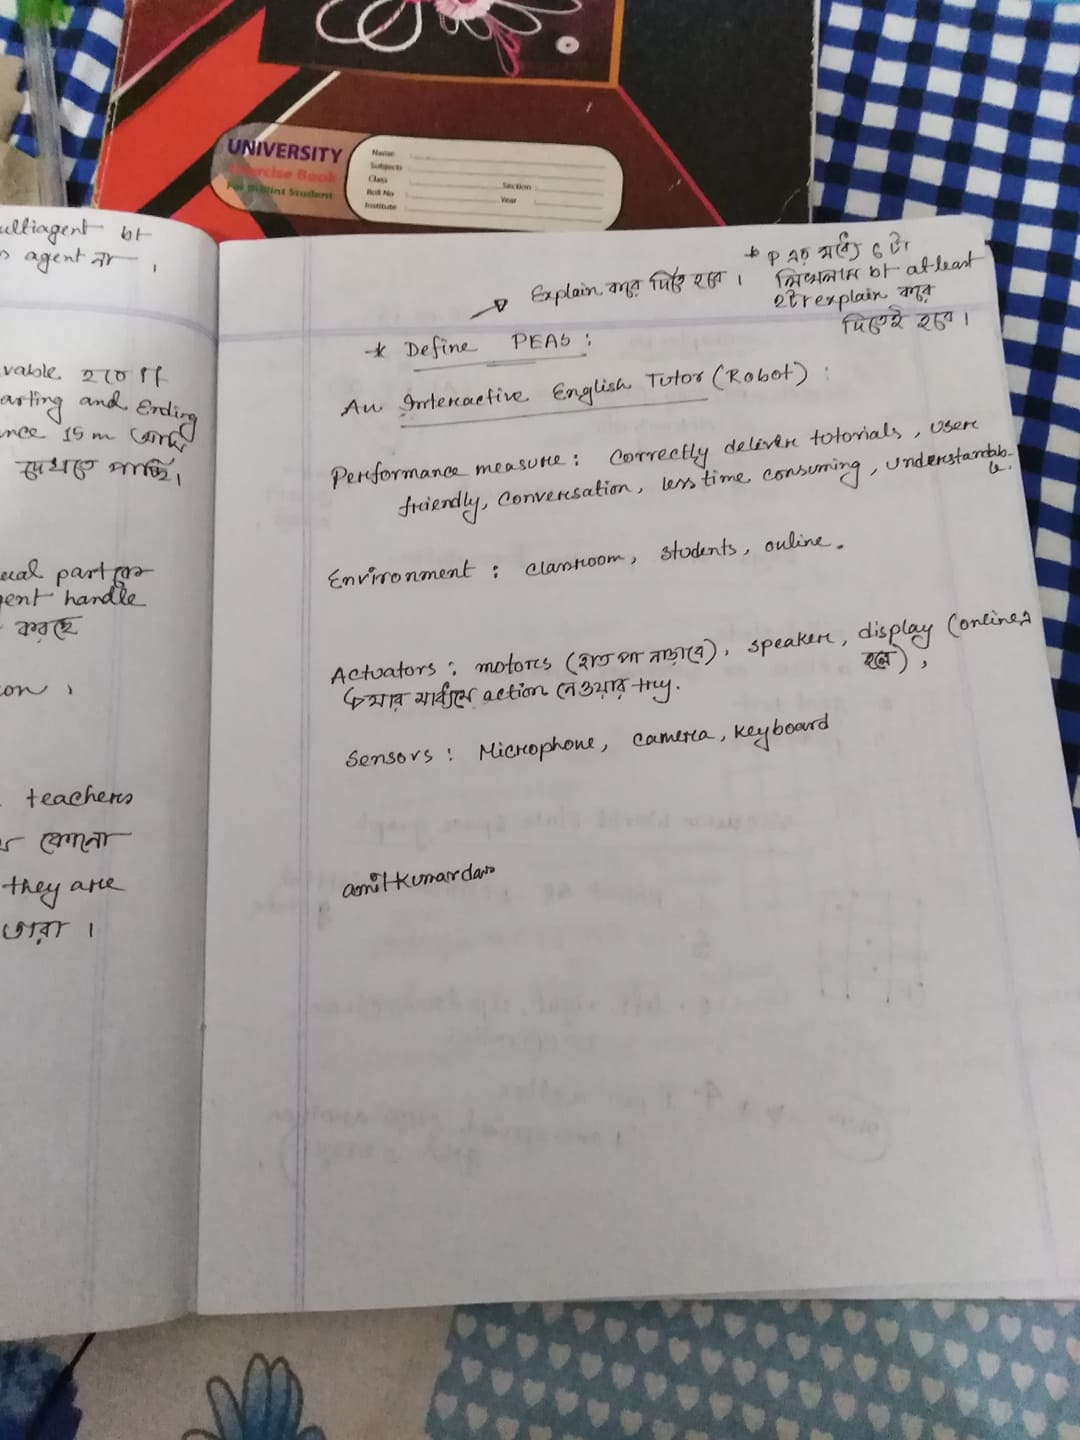 UNIVERSITY
Exercise Book
For Brillint Student
Name
Subjects
Class
Roll No
Institute
Section
Year
ultiagent bt
agent না ,
vable হতে
arting and Ending
nce 15 m
দেখতে পাচ্ছি,
part কে
gent handle
করছে
on ,
teachers
কোনো
they are
তারা ।
* P এর মধ্যে 6 টা
লিখলাম bt at least
2টা explain করে
দিতেই হবে ।
→ Explain করে দিতে হবে ।
* Define PEAS :
An Interactive English Tutor (Robot) :
Performance measure : Correctly deliver tutorials , user
friendly, conversation, less time consuming, understandab-
le.
Environment : classroom, students, online .
Actuators : motors (হাত পা নাড়াবে), speaker, display (online এ
হলে) ,
যার মাধ্যমে action নেওয়ার try.
Sensors : Microphone, camera, keyboard
amitkumardas